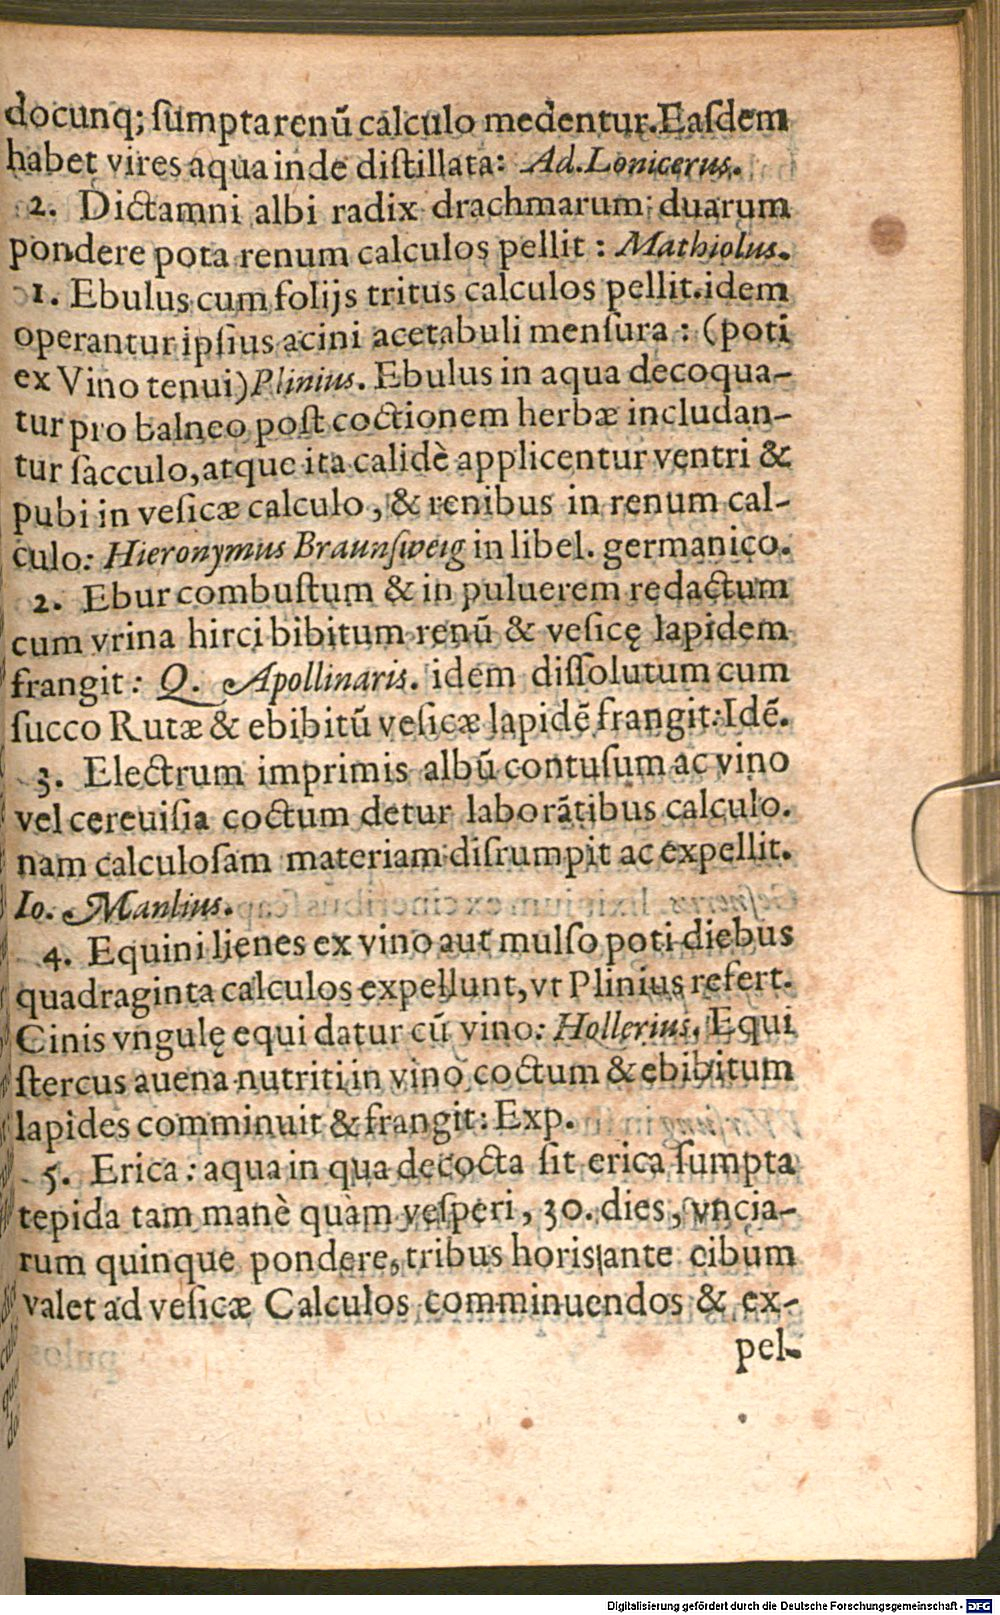 docunq; ſumpta renũ calculo medentur. Eaſdem
habet vires aqua inde diſtillata: Ad. Lonicerus.
2. Dictamni albi radix drachmarum duarum
pondere pota renum calculos pellit : Mathiolus.
1. Ebulus cum folijs tritus calculos pellit. idem
operantur ipſius acini acetabuli menſura : (poti
ex Vino tenui) Plinius. Ebulus in aqua decoqua-
tur pro balneo poſt coctionem herbæ includan-
tur ſacculo, atque ita calidè applicentur ventri &
pubi in veſicæ calculo, & renibus in renum cal-
culo: Hieronymus Braunſweig in libel. germanico.
2. Ebur combuſtum & in puluerem redactum
cum vrina hirci bibitum renũ & veſicę lapidem
frangit: Q. Apollinaris. idem diſſolutum cum
ſucco Rutæ & ebibitũ veſicæ lapidẽ frangit: Idẽ.
3. Electrum imprimis albũ contuſum ac vino
vel cereuiſia coctum detur laborãtibus calculo.
nam calculoſam materiam diſrumpit ac expellit.
Io. Manlius.
4. Equini lienes ex vino aut mulſo poti diebus
quadraginta calculos expellunt, vt Plinius refert.
Cinis vngulę equi datur cũ vino: Hollerius. Equi
ſtercus auena nutriti in vino coctum & ebibitum
lapides comminuit & frangit: Exp.
5. Erica : aqua in qua decocta ſit erica ſumpta
tepida tam manè quàm veſperi, 30. dies, vncia-
rum quinque pondere, tribus horis ante cibum
valet ad veſicæ Calculos comminuendos & ex-
pel-
Digitalisierung gefördert durch die Deutsche Forschungsgemeinschaft - DFG